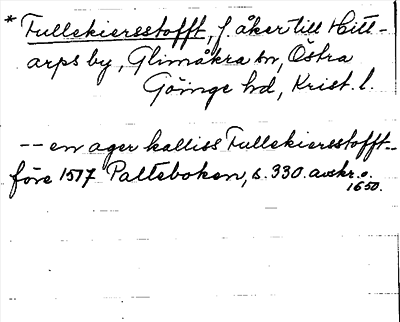 * Fullekiersstofft, f. åker till Hitt-
arps by, Glimåkra sn, Östra
Göinge hd, Krist. l.
-- en ager kalliss Fullekiersstofft --
före 1517 Palteboken, s. 330. avskr. o.
1650.